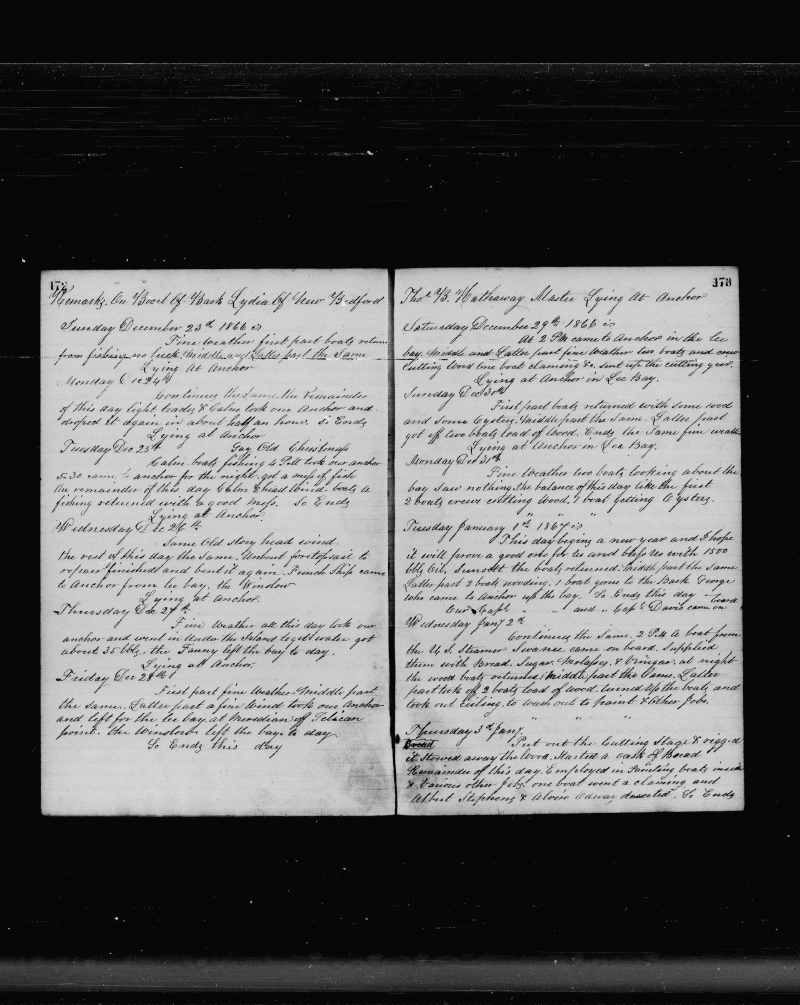 172
Remarks. On Board Of Bark Lydia Of New Bedford
Sunday December 23d 1866 is
Fine weather first part boats return
from fishing no luck. Middle and Latter part the Same
Lying At Anchor
Monday Dec 24th
Continues the Same. the remainder
of this day light leades & Calm took our Anchor and
droped it again in about half an hour. So Ends
Lying at Anchor
Tuesday Dec 25th Gay Old Christmass
Calm boats fishing 4 PM took our anchor
5.30 came to anchor for the night. got a mess of fish
the remainder of this day Calm & head Wind. boats a
fishing returned with a good mess. So Ends
Lying at Anchor.
Wednesday Dec 26th
Same Old Story head wind.
the rest of this day the Same. Unbent foretopsail to
repair finished and bent it again. French Ship came
to Anchor from lee bay. the Winslow
Lying at Anchor.
Thursday Dec 27th
Fine Weather all this day took our
anchor and went in Under the Island to gett water got
about 35 bbls. the Fanny left the bay to day.
Lying at Anchor.
Friday Dec 28th
First part fine Weather Middle part
the Same. Latter part a fine Wind took our Anchor
and left for the lee bay. at Meredian off Pelican
point. the Winslow left the bay to day
So Ends this day
173
Thos B. Hathaway Master Lying At Anchor
Saturday December 29th 1866 is
At 2 PM came to Anchor in the lee
bay. Middle and Latter part fine Weather two boats and crew
Cutting Wood one boat claming &c. sent up the cutting gear.
Lying at Anchor in Lee Bay.
Sunday Dec 30th
First part boats returned with some wood
and some Oysters. Middle part the Same. Latter part
got off two boats load of Wood. Ends the Same fine weath
Lying at Anchor in Lee Bay.
Monday Dec 31st
Fine Weather two boats looking about the
bay saw nothing. the balance of this day like the first
2 boats crews cutting Wood. 1 boat getting Oysters.
" " "
Tuesday January 1st 1867 is
This day begins a new year and I hope
it will prove a good one for Us and bless Us with 1500
bbls Oil. Sunsett the boats returned. Middle part the Same
Latter part 2 boats wooding. 1 boat gone to the Bark George
who came to Anchor up the bay. So Ends this day
Our Capt " " and " Capt Davis came on board
Wednesday Jany 2d
Continues the Same. 2 P.M A boat from
the U.S. Steamer Swanee came on board. Supplied
them with Bread. Sugar. Molasses. & Vinegar. at night
the wood boats returned. Middle part the Same. Latter
part took off 2 boats load of wood. turned Up the boats and
took out Ceiling. to wash out to paint & Other Jobs.
" " "
Thursday 3d Jany.
Bread Put out the Cutting Stage & rigged
it Stowed away the Wood. Started a Cask of Bread
Remainder of this day. Employed in Painting boats inside
& Various other Jobs. one boat went a claming and
Albert Stephens & Alvin Adway deserted. So Ends